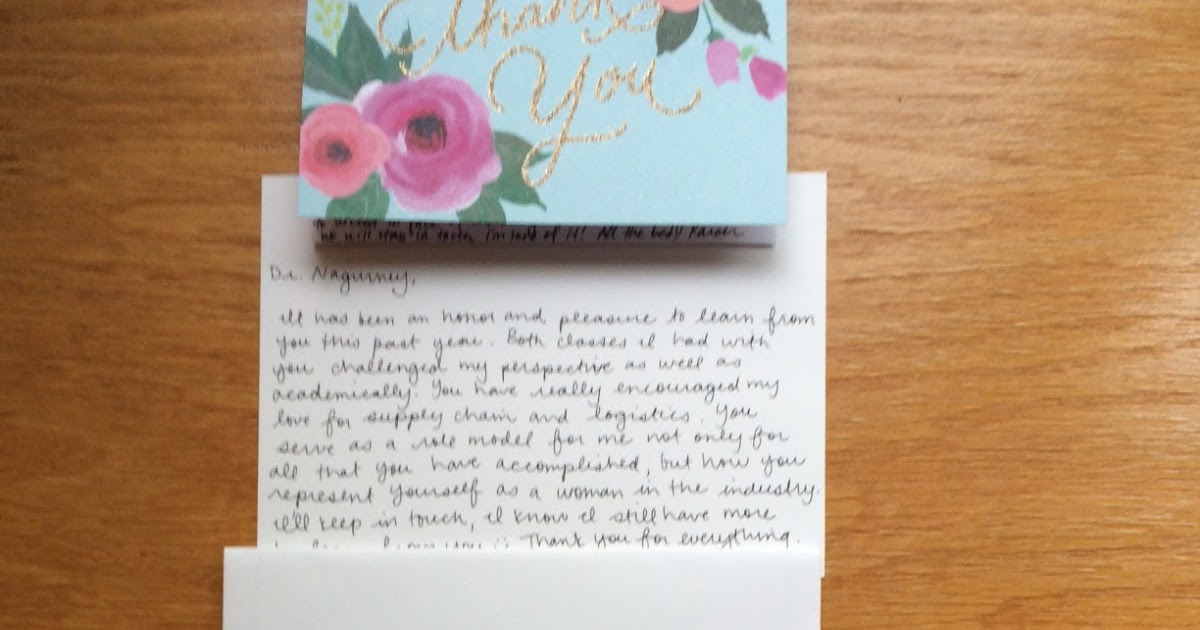 Thank
You
he will stay in touch, I'm sure of it! All the best! Karen
Dr. Nagurney,
It has been an honor and pleasure to learn from
you this past year. Both classes I had with
you challenged my perspective as well as
academically. You have really encouraged my
love for supply chain and logistics. You
serve as a role model for me not only for
all that you have accomplished, but how you
represent yourself as a woman in the industry.
I'll keep in touch, I know I still have more
to learn from you :) Thank you for everything.